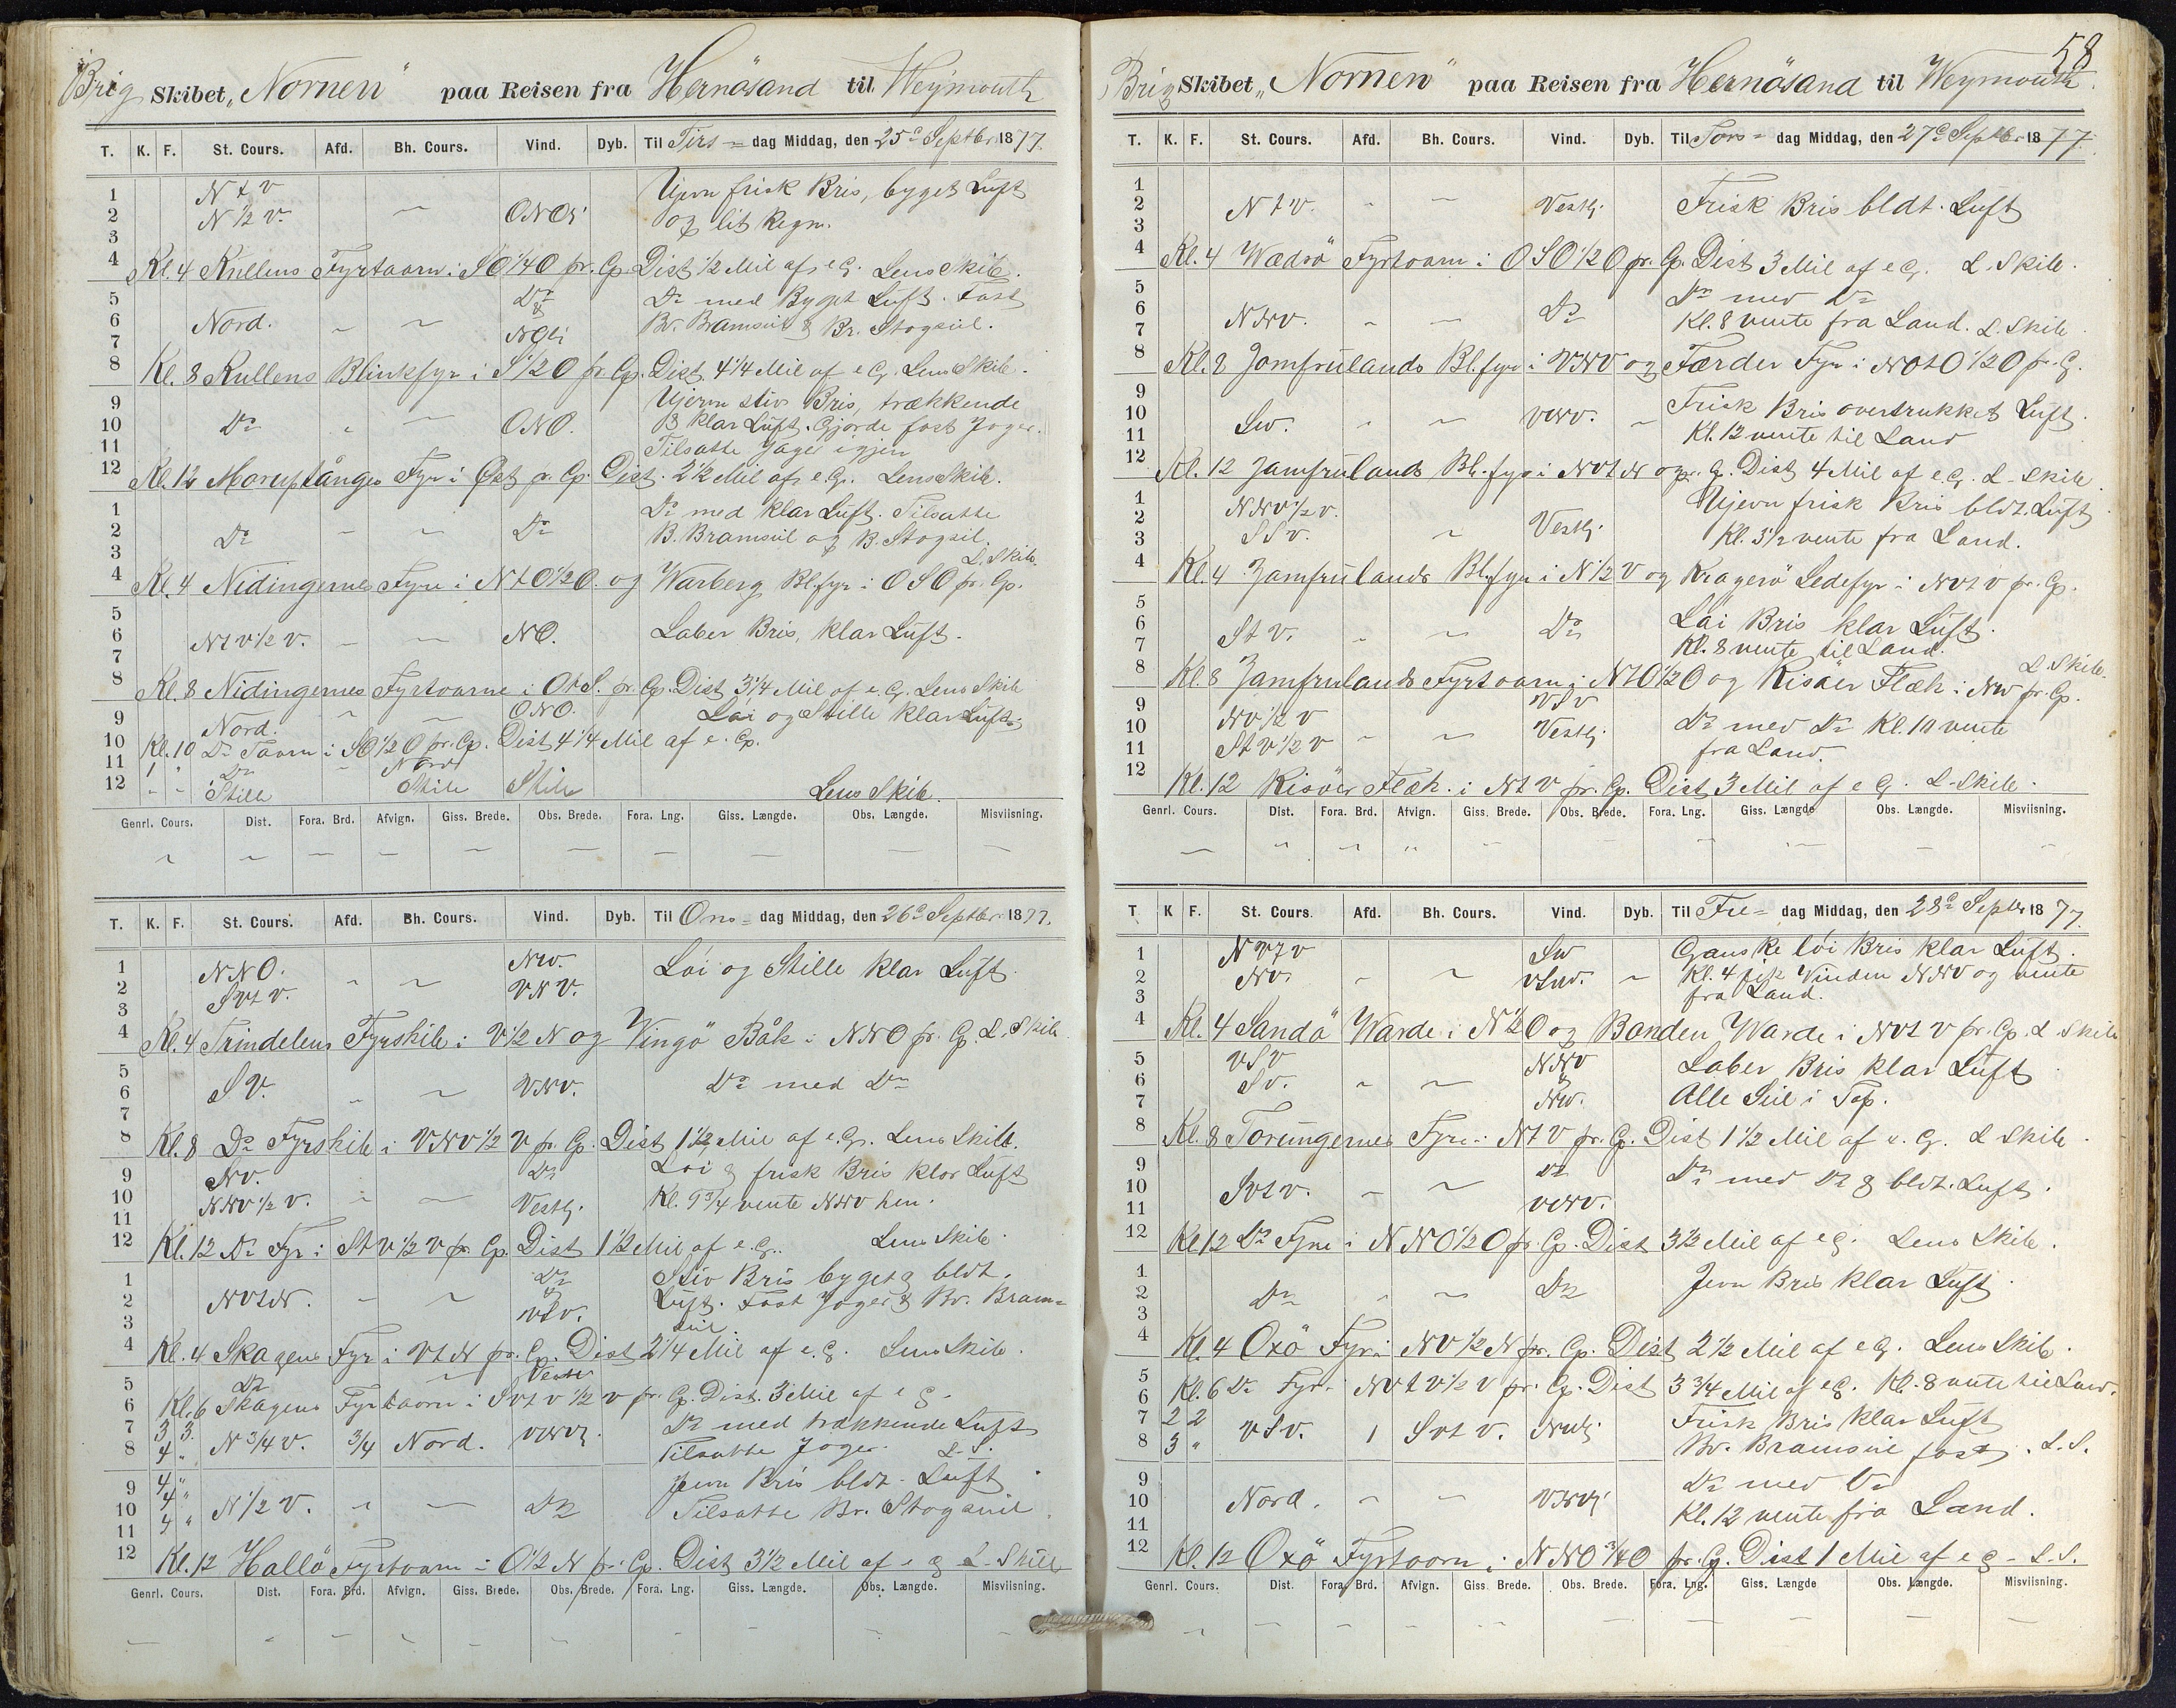 Brig Skibet „Nornen" paa Reisen fra Hernösand til Weymouth
T. K. F. St. Cours. Afd. Bh. Cours. Vind. Dyb. Til Tirs- dag Middag, den 25de Septbr 1877.
1 N t V Ujevn frisk Bris, byget Luft
2 N 1/2 V. ONOli og lit Regn.
3
4 Kl. 4 Kullens Fyrtaarn i SO 1/4 O pr. Cp. Dist 1/2 Mil af e G. Lens Skib.
5 Do & Do med Byget Luft. Fast
6 Nord. NOli Br. Bramseil & Br. Stagseil.
7
8 Kl. 8 Kullens Blinkfyr i S 1/2 O pr. Cp. Dist. 4 1/4 Mil af e G. Lens Skib.
9 Ujevn stiv Bris, trækkende
10 Do ONO. & klar Luft. Gjorde fast Jager.
11 Tilsatte Jager igjen
12 Kl. 12 Moruptånges Fyr i Øst pr. Cp. Dist. 2 1/2 Mil af e. G. Lens Skib.
1 Do med klar Luft. Tilsatte
2 Do Do B. Bramseil og B. Stagseil.
3 L. Skib.
4 Kl. 4 Nidingernes Fyre i N t O 1/2 O. og Warberg Bl. fyr i OSO pr. Cp.
5
6 N t V 1/2 V. NO. Laber Bris, klar Luft.
7
8 Kl. 8 Nidingernes Fyrtoarne i O t S. pr. Cp. Dist 3 1/4 Mil af e. G. Lens Skib
9 Nord. ONO. Löi og Stille klar Luft.
10 Kl. 10 Do Taarn i SO 1/2 O pr. Cp. Dist 4 1/4 Mil af e. G.
11 1 " Do Nord
12 " " Stille Stille Stille Lens Skib.
Genrl. Cours. Dist. Fora. Brd. Afvign. Giss. Brede. Obs. Brede. Fora. Lng. Giss. Længde. Obs. Længde. Misviisning.
T. K. F. St. Cours. Afd. Bh. Cours. Vind. Dyb. Til Ons- dag Middag, den 26de Septbr. 1877.
1 NNO. NW. Löi og Stille klar Luft.
2 SV t V. VNV.
3
4 Kl. 4 Trindelens Fyrskib i V 1/2 N og Vingö Båk i NNO pr. Cp. L. Skib
5
6 SV. VNV. Do med Do
7
8 Kl. 8 Do Fyrskib i VNV 1/2 V pr. Cp. Dist 1 1/2 Mil af e. G. Lens Skib.
9 NV. Do Löi & frisk Bris klar Luft
10 NNV 1/2 V. Vestlj. Kl. 9 3/4 vente NNV hen.
11
12 Kl. 12 Do Fyr i S t V 1/2 V pr. Cp. Dist 1 1/2 Mil af e. G. Lens Skib.
1 Do & Stiv Bris byget & bldt.
2 NV t N. VSV. Luft. Fast Jager & Br. Bram-
3 seil
4 Kl. 4 Skagens Fyr i V t N pr. Cp. Dist 2 1/4 Mil af e. G. Lens Skib.
5 Do Vestlj
6 Kl. 6 Skagens Fyrtaarn i SV t V 1/2 V pr. Cp. Dist. 3 Mil af e G.
7 3 3. Do med trækkende Luft
8 4 " N 3/4 V. 3/4 Nord. VNVlj. Tilsatte Jager. L. S.
9 4 " Jevn Bris bldt. Luft
10 4 " N 1/2 V. Do Tilsatte Br. Stagseil.
11 4 "
12 Kl. 12 Hallö Fyrtoarn i O 1/2 N pr. Cp. Dist 3 1/2 Mil af e G L. Skib
Genrl. Cours. Dist. Fora. Brd. Afvign. Giss. Brede. Obs. Brede. Fora. Lng. Giss. Længde. Obs. Længde. Misviisning.
58
Brig Skibet „Nornen" paa Reisen fra Hernösand til Weymouth.
T. K. F. St. Cours. Afd. Bh. Cours. Vind. Dyb. Til Tors- dag Middag, den 27de Septbr 1877.
1
2 N t V. Vestlj. Frisk Bris bldt. Luft
3
4 Kl. 4 Wædrö Fyrtoarn i OSO 1/2 O pr. Cp. Dist 3 Mil af e G. L. Skib.
5 Do med Do
6 NNV. Do Kl. 8 vente fra Land. L. Skib.
7
8 Kl. 8 Jomfrulands Bl. fyr i VNV og Færder Fyr i NO t O 1/2 O pr. G.
9 Frisk Bris overtrukket Luft.
10 SW. VNV. Kl. 12 vente til Land
11
12 Kl. 12 Jamfrulands Bl. fyr i NV t N pr. G. Dist 4 Mil af e G. L. Skib.
1 NNV 1/2 V. Ujevn frisk Bris bldt. Luft
2 SSV. Vestlj. Kl. 3 1/2 vente fra Land.
3
4 Kl. 4 Jamfrulands Bl. fyr i N 1/2 V og Kragerö Ledefyr i NV t V pr. Cp.
5 Löi Bris klar Luft.
6 S t V. Do Kl. 8 vente til Land.
7 L. Skib.
8 Kl. 8 Jamfrulands Fyrtoarn i N t O 1/2 O og Risöer Flæk i NW pr. Cp.
9 NV 1/2 V VSV Do med Do Kl. 10 vente
10 S t V 1/2 V Vestlj. fra Land.
11
12 Kl. 12 Risöer Flæk i N t V pr. Cp. Dist 3 Mil af e G. L. Skib.
Genrl. Cours. Dist. Fora. Brd. Afvign. Giss. Brede. Obs. Brede. Fora. Lng. Giss. Længde Obs. Længde. Misviisning.
T K F. St. Cours. Afd. Bh. Cours. Vind. Dyb. Til Fre- dag Middag, den 28de Septbr 1877.
1 NV t V SW Ganske löi Bris klar Luft.
2 NV. VSW. Kl. 4 fik Vinden NNV og vente
3 fra Land.
4 Kl. 4 Sandö Warde i N 1/2 O og Banden Warde i NV t V pr. Cp. L Skib
5 VSV NNV Laber Bris klar Luft.
6 SV. & Alle Seil i Top.
7 NW.
8 Kl. 8 Torungernes Fyre i N t V pr. Cp. Dist 1 1/2 Mil af e. G. L Skib.
9 Do Do med Do & bldt. Luft.
10 SV t V. VNV.
11
12 Kl 12 Do Fyre i NNO 1/2 O pr. Cp. Dist 3 1/2 Mil af e G. Lens Skib.
1 Jevn Bris klar Luft.
2 Do Do
3
4 Kl. 4 Oxö Fyr i NV 1/2 N pr. Cp. Dist 2 1/2 Mil af e G. Lens Skib.
5
6 Kl. 6 Do Fyr i NV t V 1/2 V pr. Cp. Dist 3 3/4 Mil af e G. Kl. 8 vente til Land.
7 2 2 Frisk Bris klar Luft
8 3 " VSV. 1 SV t V. NWlj. Br. Bramseil fast. L. S.
9 Do med Do
10 Nord. VNVlj Kl. 12 vente fra Land.
11
12 Kl. 12 Oxö Fyrtoorn i NNO 3/4 O pr. Cp. Dist 1 Mil af e G - L. S.
Genrl. Cours. Dist. Fora. Brd. Afvign. Giss. Brede. Obs. Brede. Fora. Lng. Giss. Længde Obs. Længde. Misviisning.